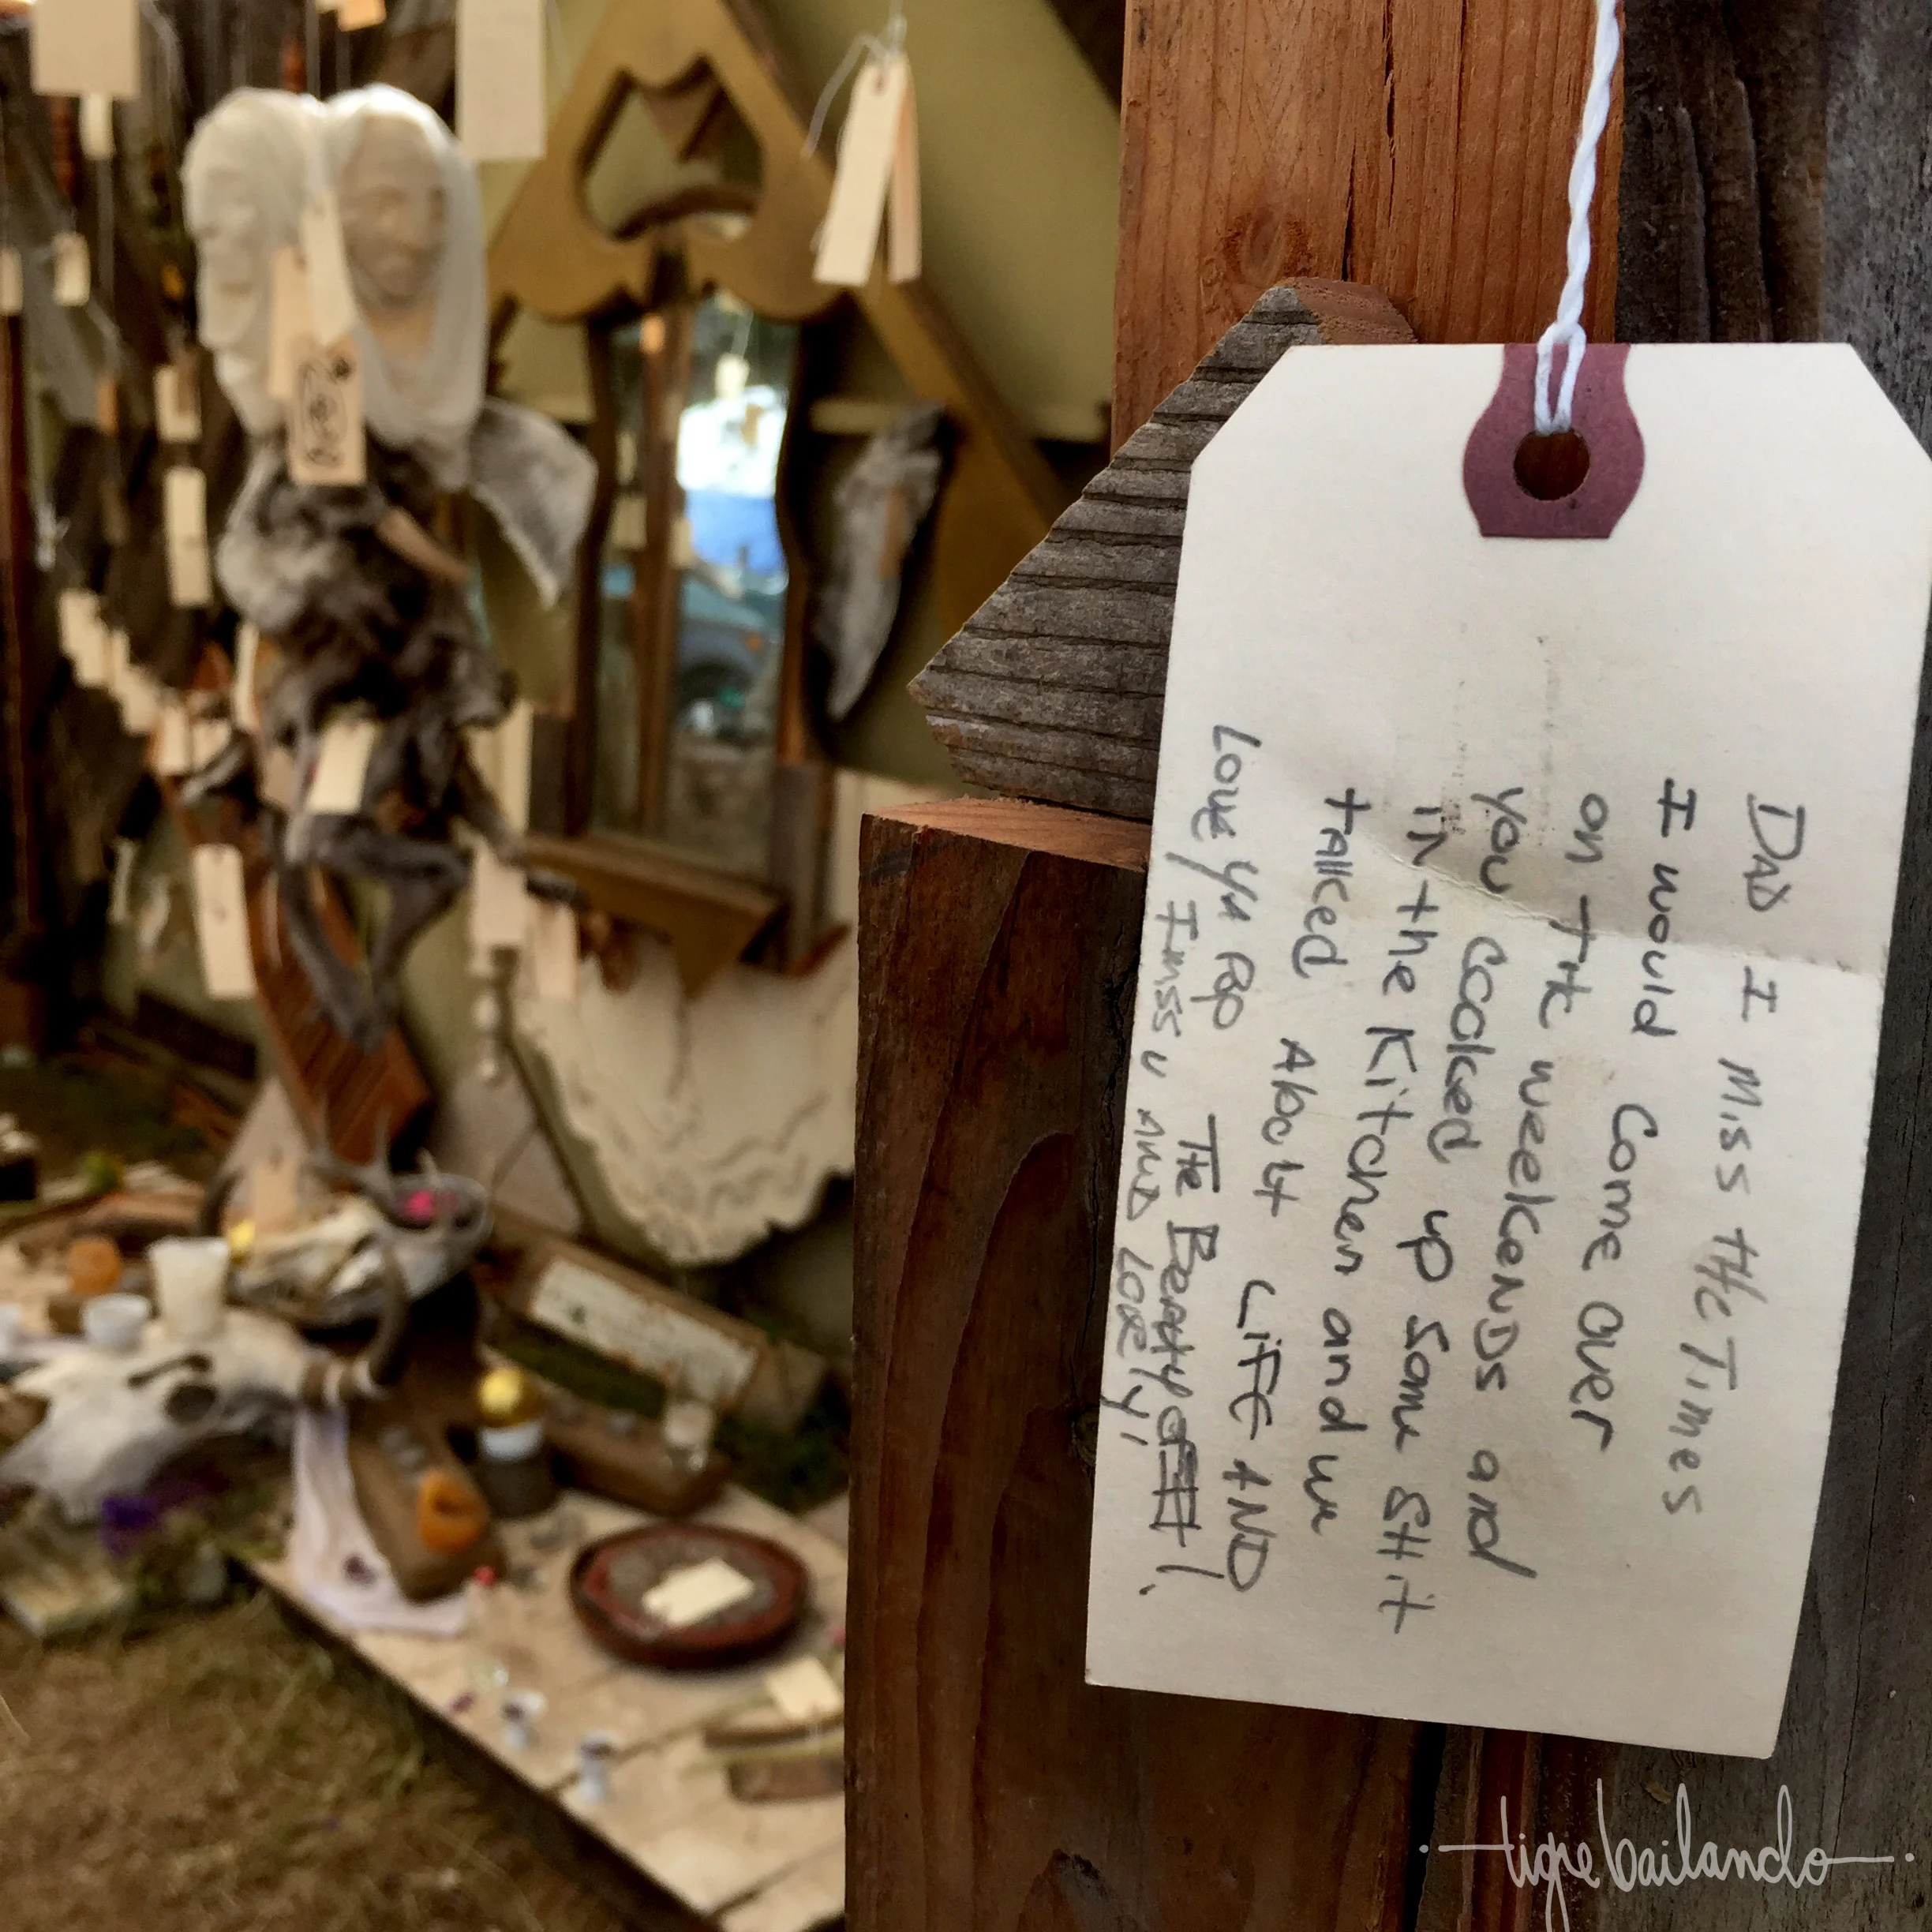 DAD I Miss the Times
I would Come over
on the weekends and
you cooked up some SHit
in the Kitchen and we
talked About LiFE AND
Love ya Pop The Beauty of it!.
I miss u AND LOVE y!
tigre bailando